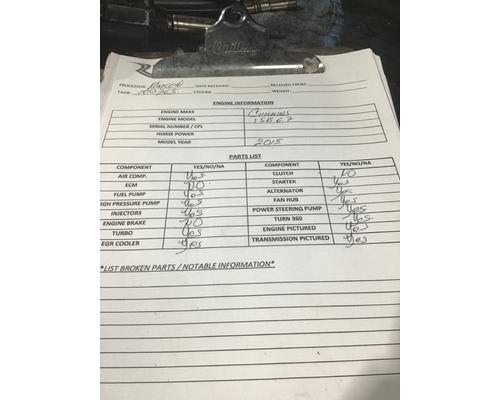 PROCESSOR: DATE RECEIVED: RECEIVED FROM:
TAG#: STOCK#: WEIGHT:
ENGINE INFORMATION
ENGINE MAKE CUMMINS
ENGINE MODEL ISB6.7
SERIAL NUMBER / CPL
HORSE POWER
MODEL YEAR 2015
PARTS LIST
COMPONENT YES/NO/NA COMPONENT YES/NO/NA
AIR COMP. Yes CLUTCH NO
ECM NO STARTER Yes
FUEL PUMP Yes ALTERNATOR Yes
IGH PRESSURE PUMP Yes FAN HUB Yes
INJECTORS Yes POWER STEERING PUMP Yes
ENGINE BRAKE NO TURN 360 Yes
TURBO Yes ENGINE PICTURED Yes
EGR COOLER Yes TRANSMISSION PICTURED Yes
*LIST BROKEN PARTS / NOTABLE INFORMATION*